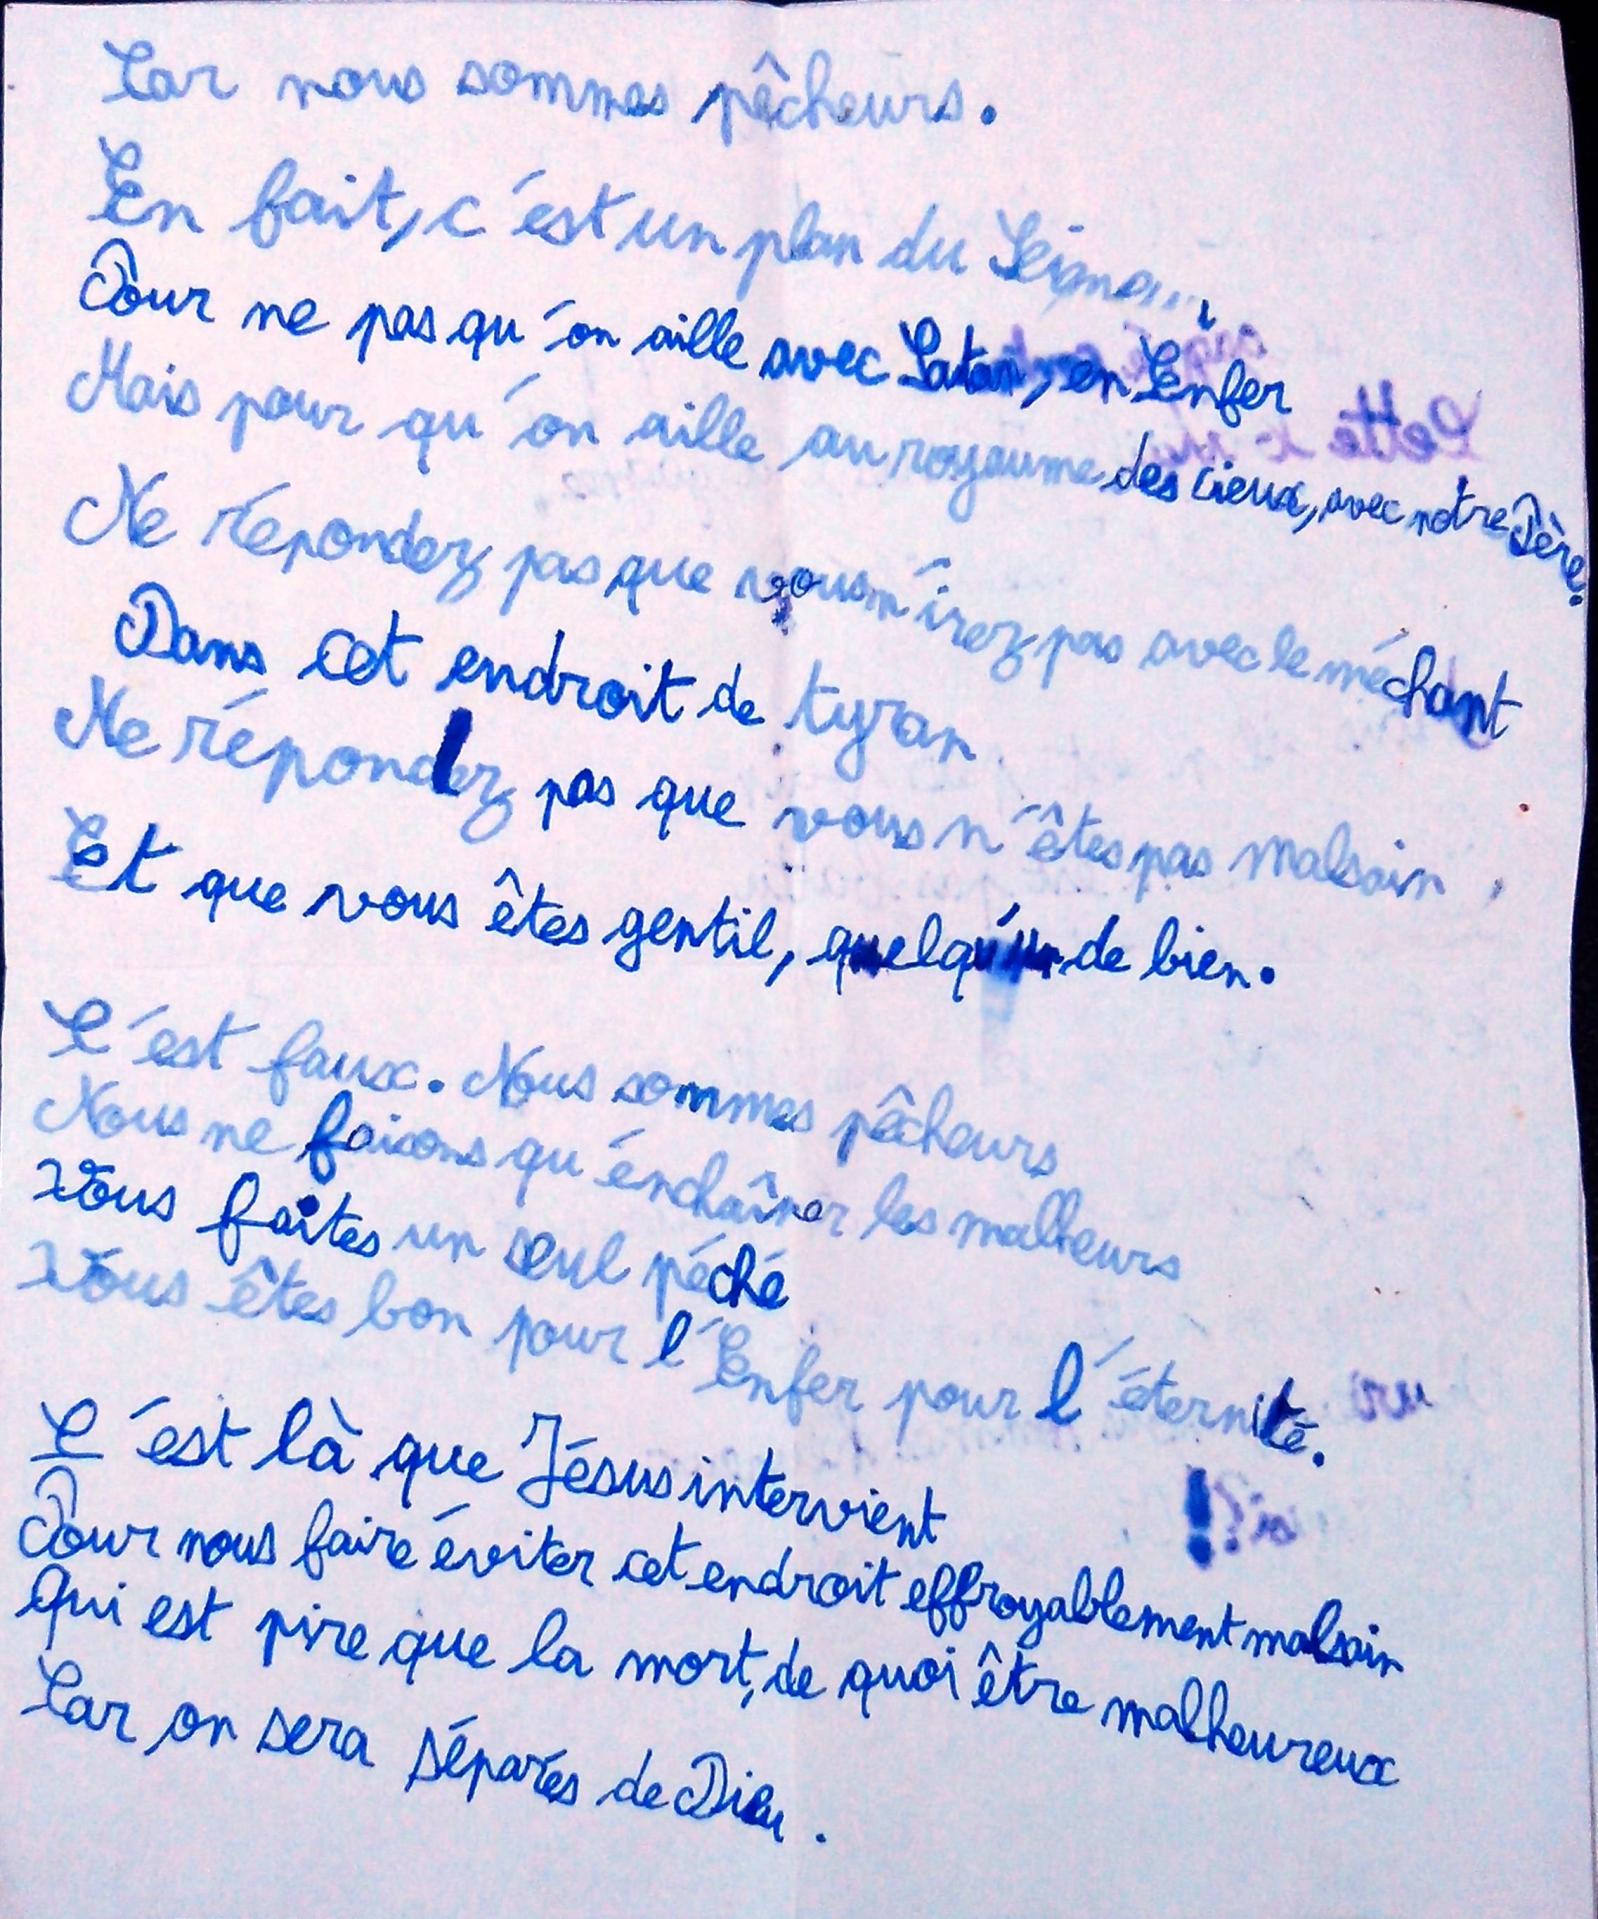 Car nous sommes pêcheurs.
En fait, c'est un plan du
Pour ne pas qu'on aille avec Satan, en Enfer
Mais pour qu'on aille au royaume des cieux, avec notre Père.
Ne répondez pas que vous n'irez pas avec le méchant
Dans cet endroit de tyran
Ne répondez pas que vous n'êtes pas malsain,
Et que vous êtes gentil, quelqu'un de bien.
C'est faux. Nous sommes pêcheurs
Nous ne faisons qu'énchaîner les malheurs
Vous faites un seul péché
Vous êtes bon pour l'Enfer pour l'éternité.
C'est là que Jésus intervient
Pour nous faire éviter cet endroit effroyablement malsain
Qui est pire que la mort, de quoi être malheureux
Car on sera séparés de Dieu.